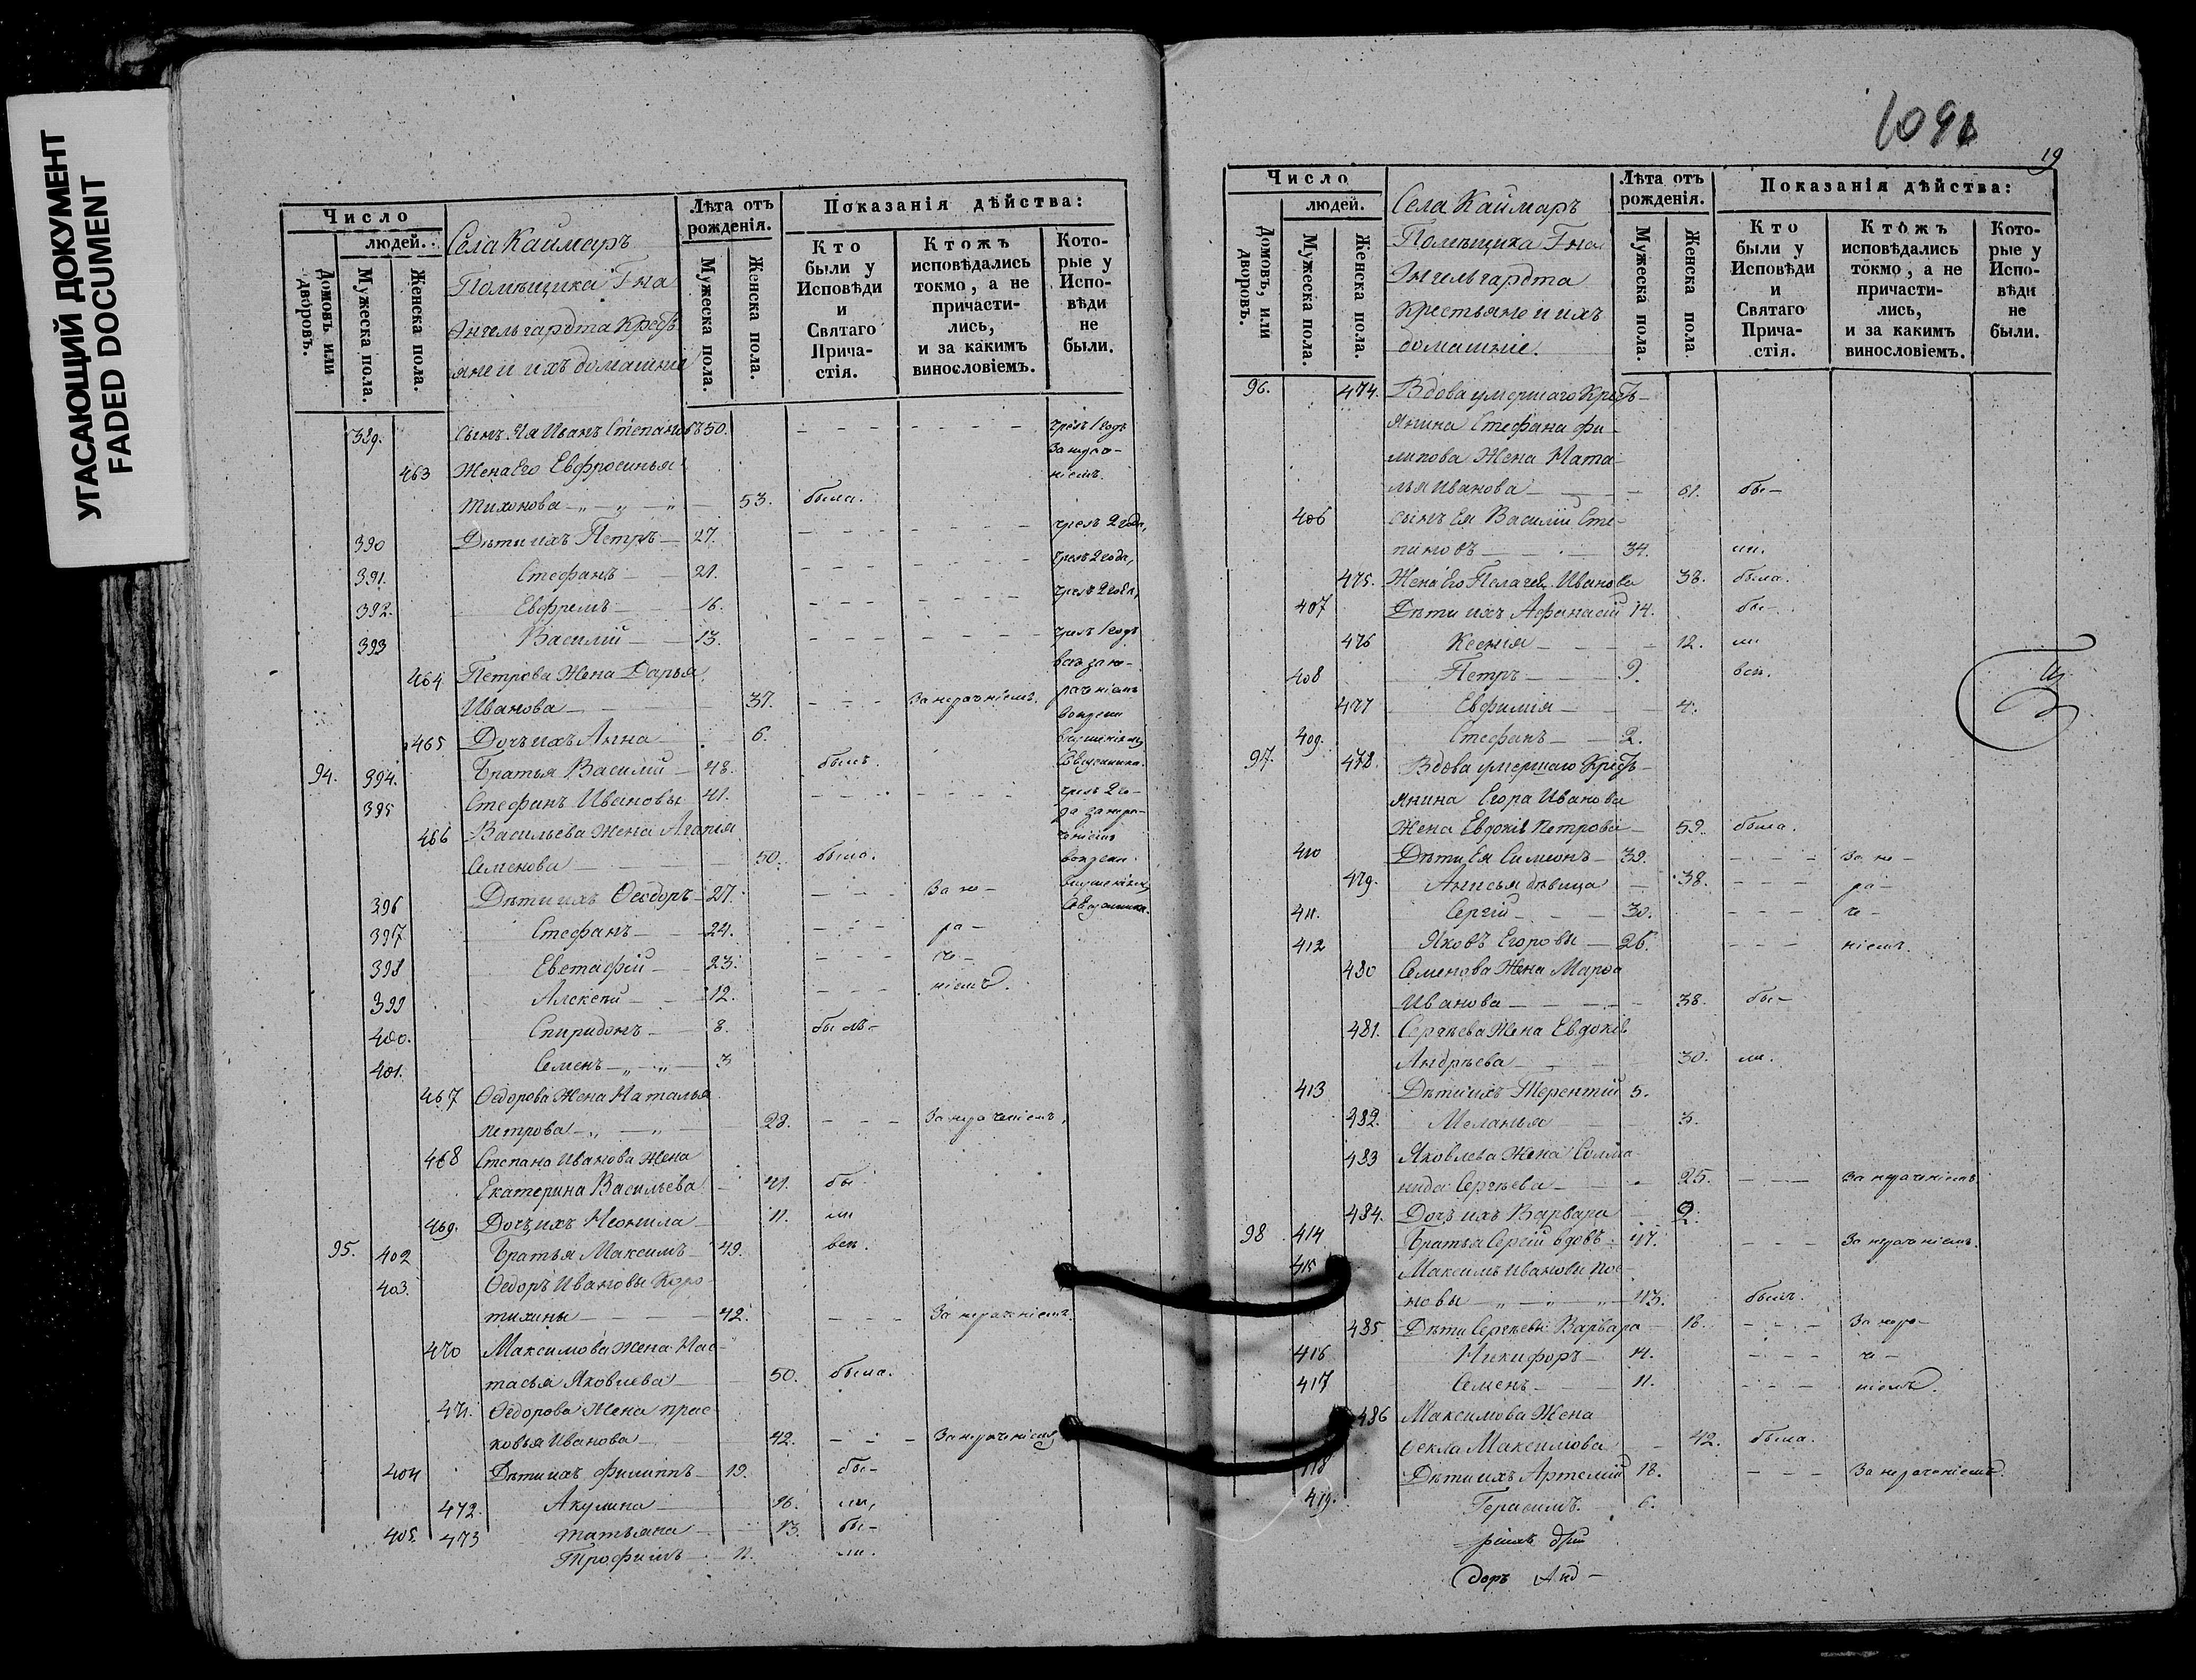 УГАСАЮЩИЙ ДОКУМЕНТ
FADED DOCUMENT
Число
людей.
Домовъ или дворовъ.
Мужеска пола.
Женска пола.
Села Каймаръ
Помѣщика Гна
Энгельгардта Крестъ
яне и ихъ домашніе
Лѣта отъ рожденія.
Мужеска пола.
Женска пола.
Показанія дѣйства:
Кто были у Исповѣди и Святаго Прича-стія.
Ктожъ исповѣдались токмо, а не причасти-лись, и за какимъ винословіемъ.
Кото-рые у Испо-вѣди не были.
389. сынъ Ея Иванъ Степановъ 50.
463 Жена Его Евфросинья
Тихонова 53. была.
390 Дѣти ихъ Петръ 27.
391. Стефанъ 21.
392. Евфремъ 16.
393 Василій 13.
464 Петрова Жена Дарья
Иванова 37. За нераченіемъ.
465 Дочь ихъ Анна 6.
94. 394. Братья Василій 48. былъ.
395 Стефанъ Ивановы 41.
466 Васильева Жена Агапія
Семенова 50. была.
396 Дѣти ихъ Ѳеодоръ 27. За не-
397 Стефанъ 24. ра-
398 Евстафій 23. че-
399 Алексѣй 12. ніемъ.
400. Спиридонъ 8. былъ
401. Семенъ 3
467 Ѳедорова Жена Наталья
Петрова 28. За нераченіемъ,
468 Степана Иванова Жена
Екатерина Васильева 41. бы-
469. Дочь ихъ Неонила 11. ли
95. 402 Братья Максимъ 49. всѣ.
403. Ѳедоръ Ивановы Коро
тихины 42. За нераченіемъ.
470 Максимова Жена Нас-
тасья Яковлева 50. была.
471. Ѳедорова Жена Прас
ковья Иванова 42. За нераченіемъ
404 Дѣти ихъ Филиппъ 19. бы-
472. Акулина 16. ли,
405. 473 Татьяна 13. бы-
Трофимъ 11. ли.
19
Число
людей.
Домовъ, или дворовъ.
Мужеска пола.
Женска пола.
Села Каймаръ
Помѣщика Гна
Энгельгардта
Крестьяне и ихъ
домашніе.
Лѣта отъ рожденія.
Мужеска пола.
Женска пола.
Показанія дѣйства:
Кто были у Исповѣди и Святаго Прича-стія.
Ктожъ исповѣдались токмо, а не причасти-лись, и за какимъ винословіемъ.
Кото-рые у Испо-вѣди не были.
96. 474. Вдова умершаго Крестъ-
янина Стефана Фи-
липова Жена Ната-
лья Иванова 61. бы-
406 сынъ Ея Василій Сте-
пановъ 34. ли.
475. Жена Его Пелагея Иванова 38. была.
407 Дѣти ихъ Афанасій 14. бы-
476 Ксенія 12. ли
408 Петръ 9. всѣ.
477 Евфимія 4.
409. Стефанъ 2.
97. 478. Вдова умершаго Крестъ-
янина Егора Иванова
Жена Евдокія Петрова 59. была.
410 Дѣти Ея Симеонъ 39. За не-
479. Анисья дѣвица 38. ра-
411. Сергій 30. че-
412 Яковъ Егоровы 26. ніемъ.
480 Семенова Жена Марѳа
Иванова 38. бы-
481. Сергѣева Жена Евдокія
Андрѣева 30. ли.
413 Дѣти ихъ Терентій 5.
482. Меланья 3.
483 Яковлева Жена Соломо-
нида Сергѣева 25. За нераченіемъ
484. Дочь ихъ Варвара 2.
98 414 Братья Сергій вдовъ 47. За нераченіемъ.
415 Максимъ Ивановы
новы 43. былъ.
485 Дѣти Сергѣевы Варвара 18. За нера-
416 Никифоръ 14. че-
417 Семенъ 11. ніемъ.
486 Максимова Жена
Ѳекла Максимова 42. была.
418 Дѣти ихъ Артемій 18. За нераченіемъ.
419. Герасимъ 6.